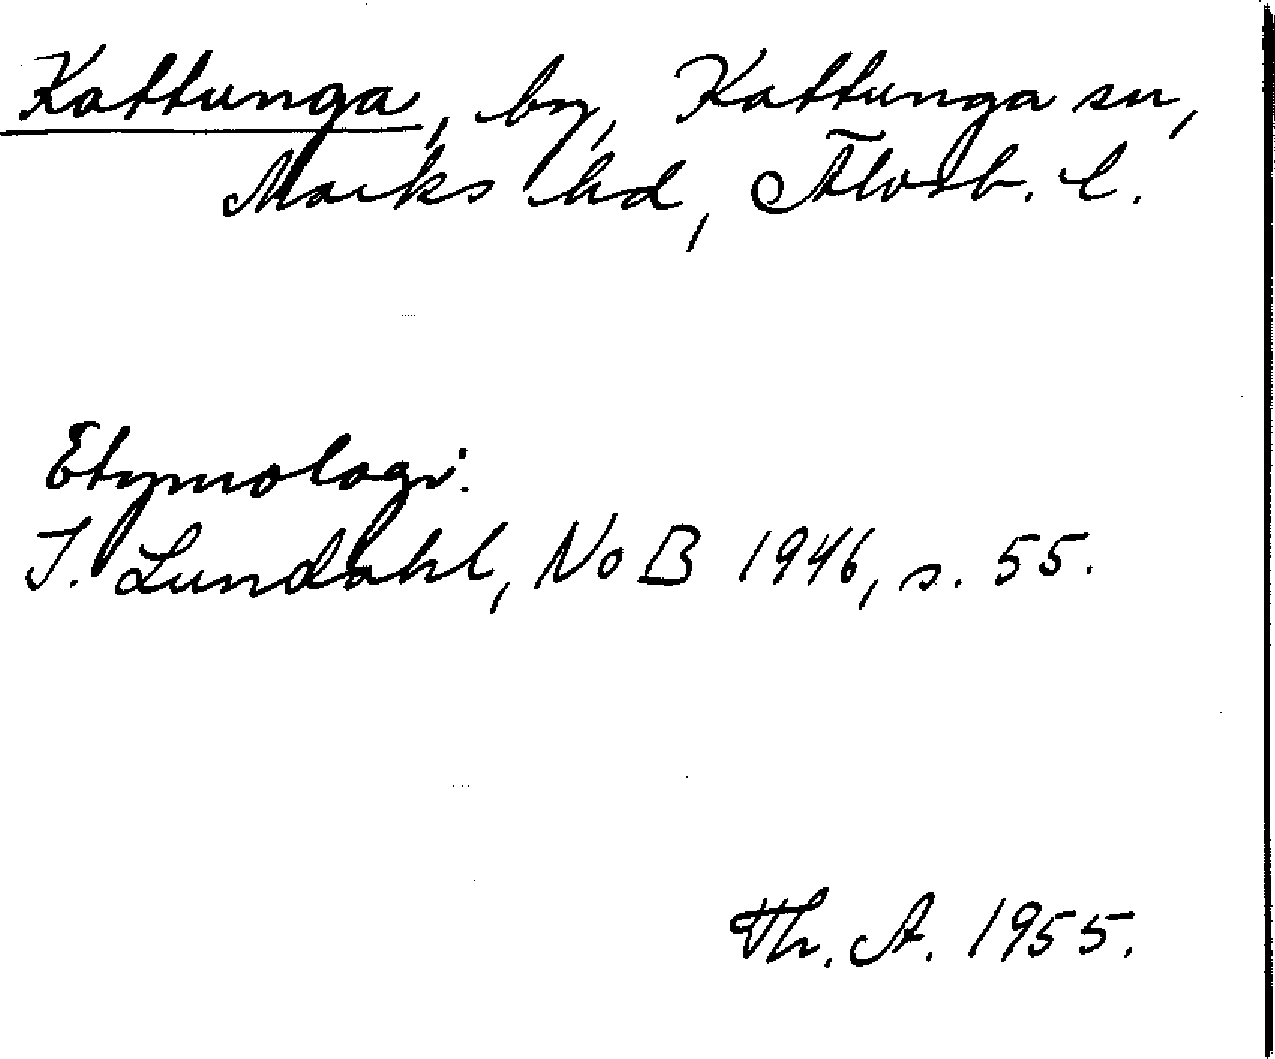 Kattunga, by, Kattunga sn,
Marks hd, Älvsb. l.
Etymologi:
I. Lundahl, NoB 1946, s. 55.
Th. A. 1955.